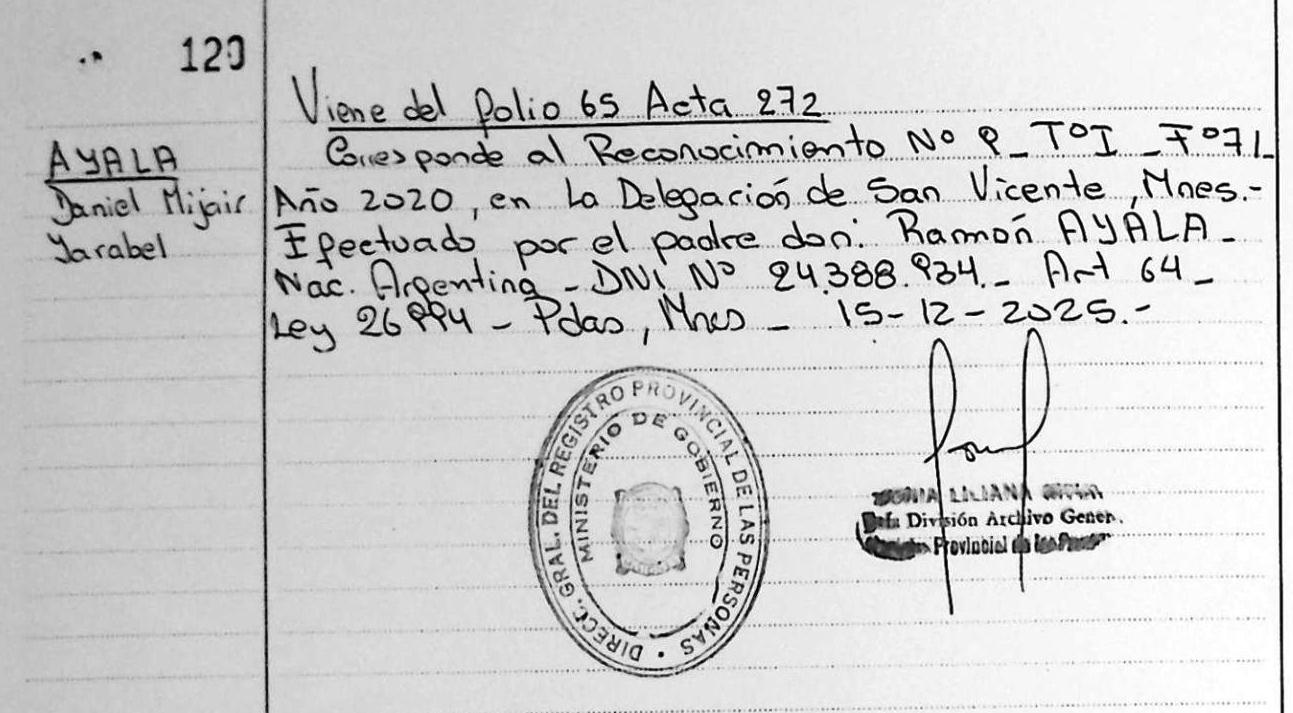 120
Viene del folio 65 Acta 272
AYALA
Daniel Mijair
Yarabel
Corresponde al Reconocimiento Nº 9_ TºI _ Fº71_
Año 2020, en la Delegación de San Vicente, Mnes.-
Efectuado por el padre don: Ramón AYALA_
Nac. Argentina _ DNI Nº 24.388.934._ Art 64_
Ley 26994 - Pdas, Mnes _ 15-12-2025.-
DIRECC. GRAL. DEL REGISTRO PROVINCIAL DE LAS PERSONAS
MINISTERIO DE GOBIERNO
LILIANA
División Archivo Gener.
Provincial de las